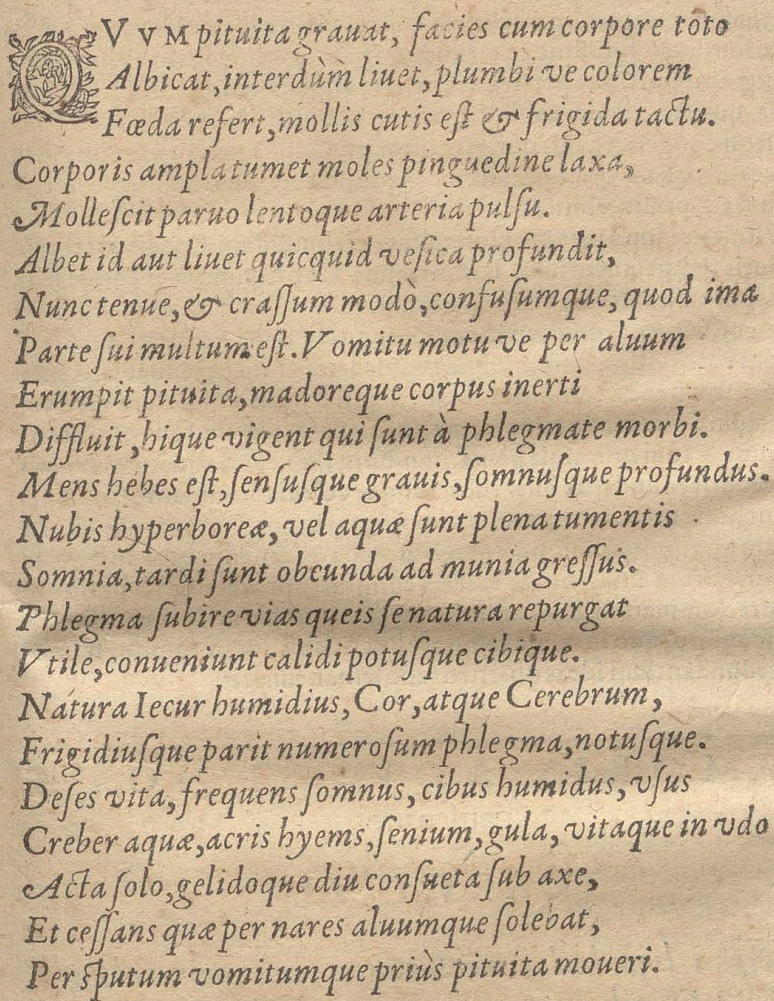 QVVM pituita grauat, facies cum corpore toto
Albicat, interdùm liuet, plumbi ve colorem
Fœda refert, mollis cutis est & frigida tactu.
Corporis ampla tumet moles pinguedine laxa,
Mollescit paruo lentoque arteria pulsu.
Albet id aut liuet quicquid vesica profundit,
Nunc tenue, & crassum modò, confusumque, quod imæ
Parte sui multum est. Vomitu motu ve per aluum
Erumpit pituita, madoreque corpus inerti
Diffluit, hique vigent qui sunt à phlegmate morbi.
Mens hebes est, sensusque grauis, somnusque profundus.
Nubis hyperboreæ, vel aquæ sunt plena tumentis
Somnia, tardi sunt obeunda ad munia gressus.
Phlegma subire vias queis se natura repurgat
Vtile, conueniunt calidi potusque cibique.
Natura Iecur humidius, Cor, atque Cerebrum,
Frigidiusque parit numerosum phlegma, notusque.
Deses vita, frequens somnus, cibus humidus, vsus
Creber aquæ, acris hyems, senium, gula, vitaque in vdo
Acta solo, gelidoque diu consueta sub axe,
Et cessans quæ per nares aluumque solebat,
Per sputum vomitumque priùs pituita moueri.